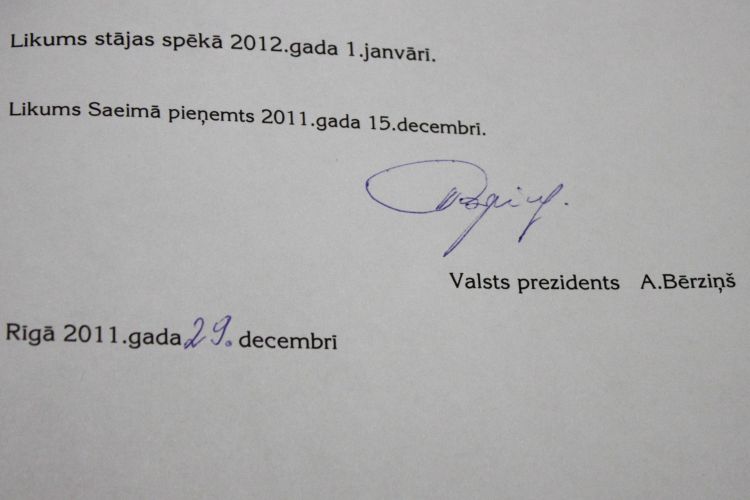 Likums stājas spēkā 2012.gada 1.janvārī.
Likums Saeimā pieņemts 2011.gada 15.decembrī.
Valsts prezidents A.Bērziņš
Rīgā 2011.gada 29. decembrī